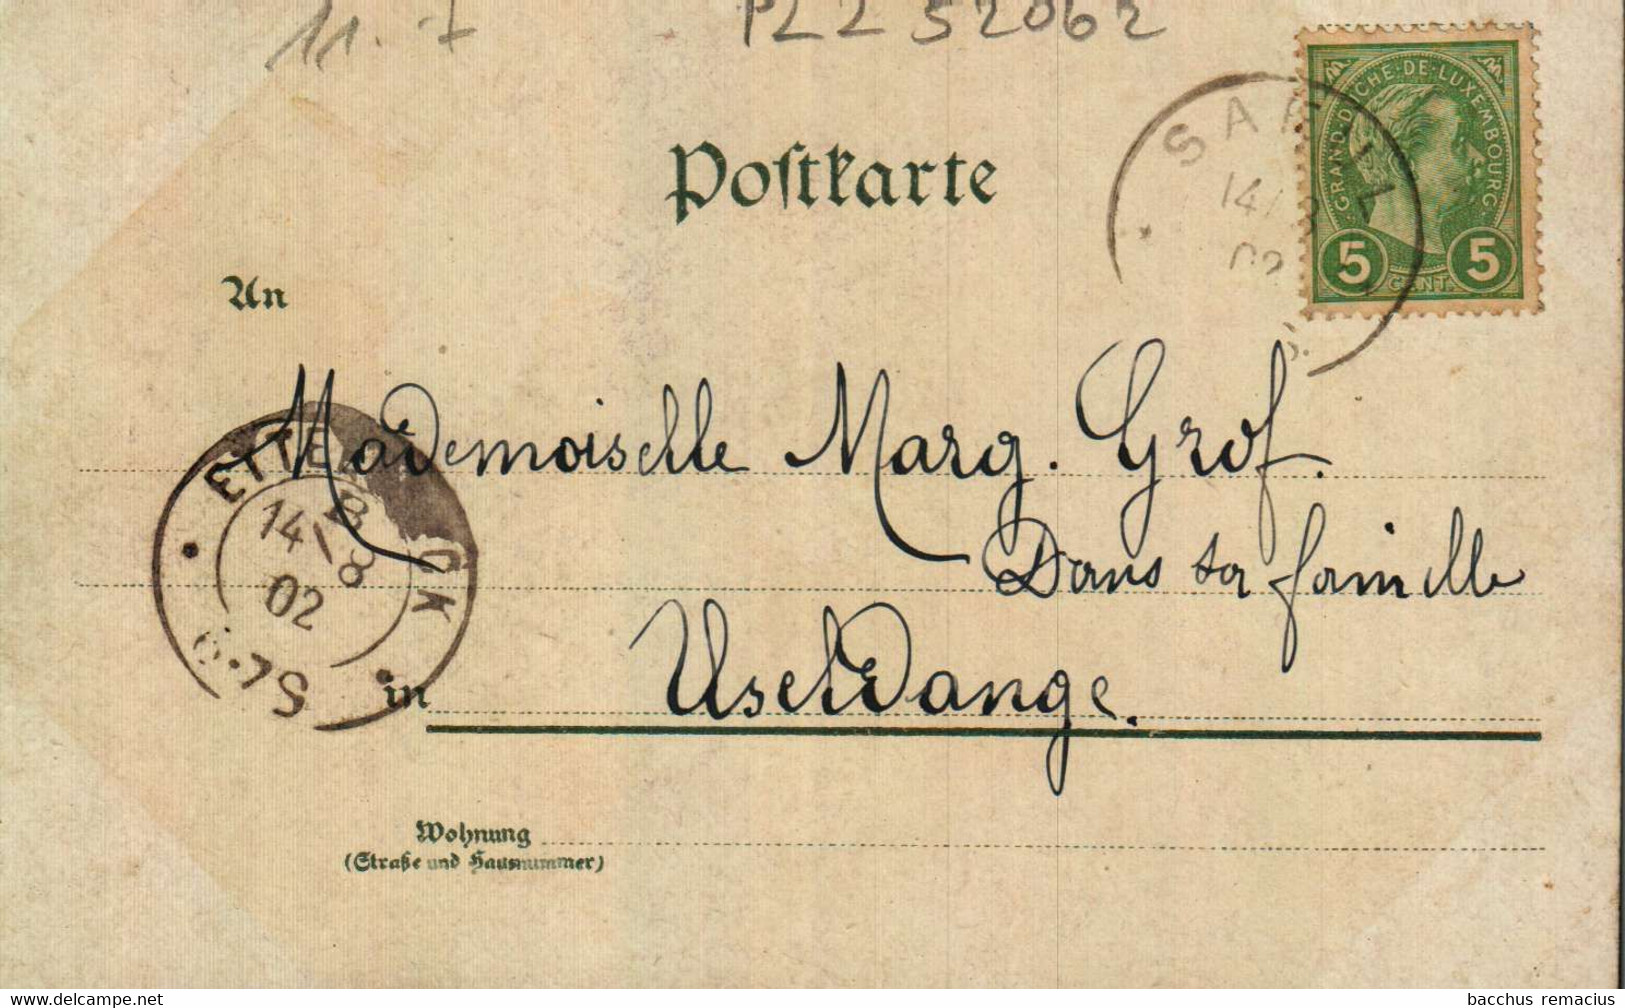 11.7 PLZ 52062
GRAND-DUCHE-DE-LUXEMBOURG
5 CENT. 5
SAEUL
14/8
02
Postkarte
An
Mademoiselle Marg. Grof.
Dans sa famille
in Useldange.
ETTELBRÜCK
14/8
02
6-7S
Wohnung
(Straße und Hausnummer)
www.delcampe.net
bacchus remacius